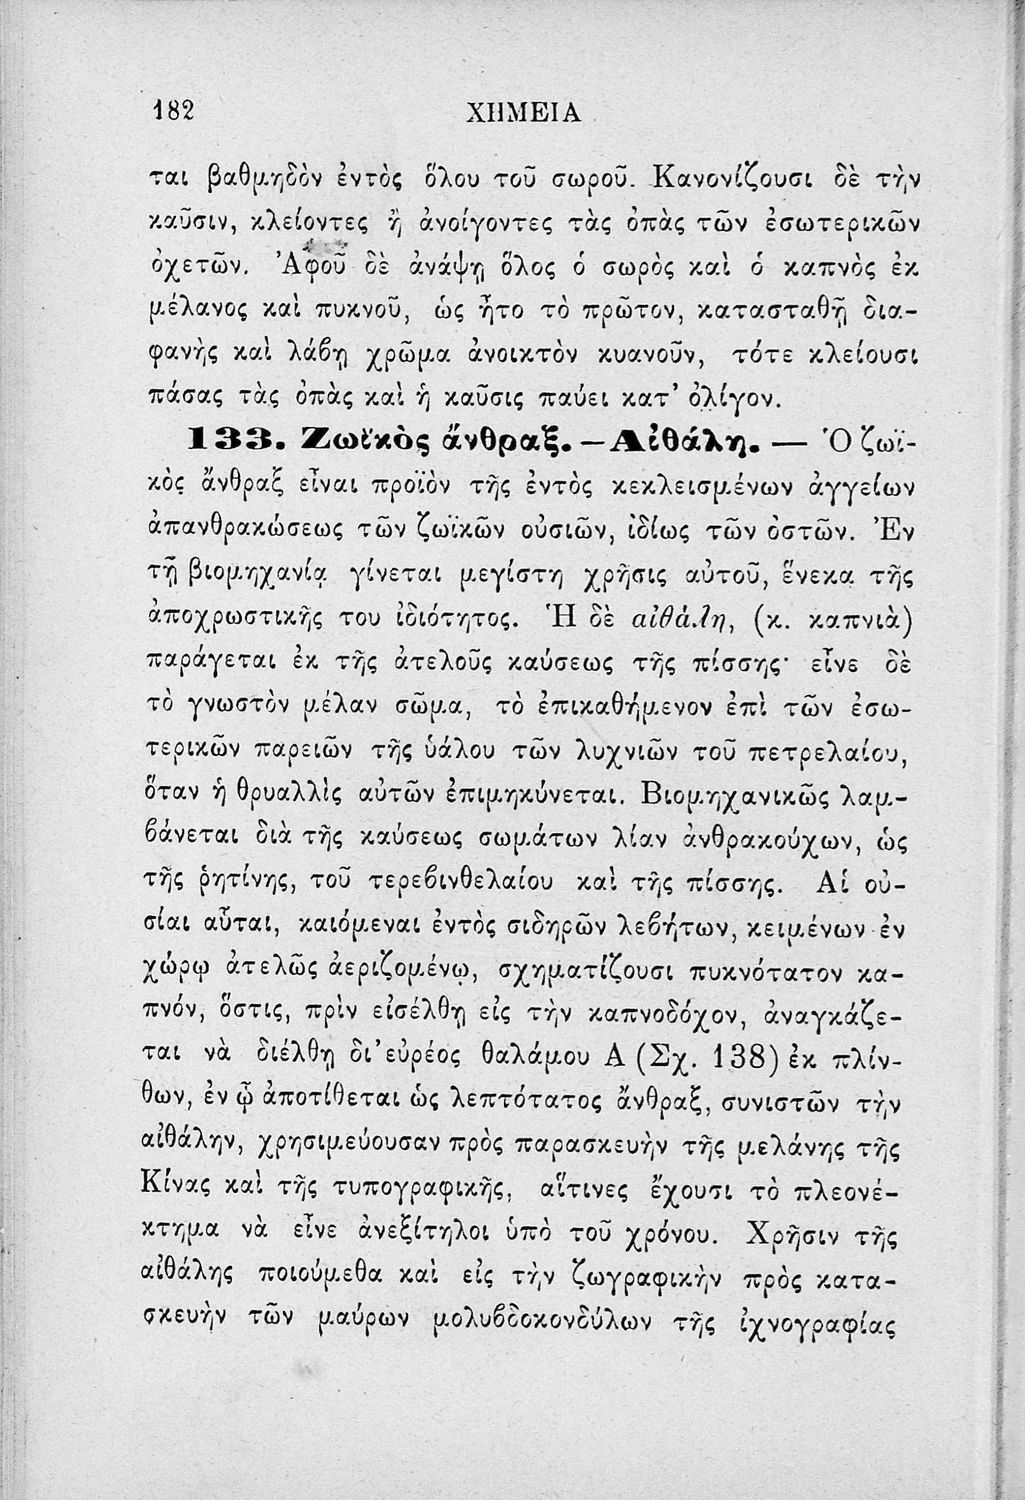 182 ΧΗΜΕΙΑ
ται βαθμηδὸν ἐντὸς ὅλου τοῦ σωροῦ. Κανονίζουσι δὲ τὴν
καῦσιν, κλείοντες ἢ ἀνοίγοντες τὰς ὀπὰς τῶν ἐσωτερικῶν
ὀχετῶν. Ἀφοῦ δὲ ἀνάψῃ ὅλος ὁ σωρὸς καὶ ὁ καπνὸς ἐκ
μέλανος καὶ πυκνοῦ, ὡς ἦτο τὸ πρῶτον, κατασταθῇ δια-
φανὴς καὶ λάβῃ χρῶμα ἀνοικτὸν κυανοῦν, τότε κλείουσι
πάσας τὰς ὀπὰς καὶ ἡ καῦσις παύει κατ' ὀλίγον.
133. Ζωϊκὸς ἄνθραξ. – Αἰθάλη. — Ὁ ζωϊ-
κὸς ἄνθραξ εἶναι προϊὸν τῆς ἐντὸς κεκλεισμένων ἀγγείων
ἀπανθρακώσεως τῶν ζωϊκῶν οὐσιῶν, ἰδίως τῶν ὀστῶν. Ἐν
τῇ βιομηχανίᾳ γίνεται μεγίστη χρῆσις αὐτοῦ, ἕνεκα τῆς
ἀποχρωστικῆς του ἰδιότητος. Ἡ δὲ αἰθάλη, (κ. καπνιὰ)
παράγεται ἐκ τῆς ἀτελοῦς καύσεως τῆς πίσσης· εἶνε δὲ
τὸ γνωστὸν μέλαν σῶμα, τὸ ἐπικαθήμενον ἐπὶ τῶν ἐσω-
τερικῶν παρειῶν τῆς ὑάλου τῶν λυχνιῶν τοῦ πετρελαίου,
ὅταν ἡ θρυαλλὶς αὐτῶν ἐπιμηκύνεται. Βιομηχανικῶς λαμ-
βάνεται διὰ τῆς καύσεως σωμάτων λίαν ἀνθρακούχων, ὡς
τῆς ῥητίνης, τοῦ τερεβινθελαίου καὶ τῆς πίσσης. Αἱ οὐ-
σίαι αὗται, καιόμεναι ἐντὸς σιδηρῶν λεβήτων, κειμένων ἐν
χώρῳ ἀτελῶς ἀεριζομένῳ, σχηματίζουσι πυκνότατον κα-
πνόν, ὅστις, πρὶν εἰσέλθῃ εἰς τὴν καπνοδόχον, ἀναγκάζε-
ται νὰ διέλθῃ δι' εὐρέος θαλάμου Α (Σχ. 138) ἐκ πλίν-
θων, ἐν ᾧ ἀποτίθεται ὡς λεπτότατος ἄνθραξ, συνιστῶν τὴν
αἰθάλην, χρησιμεύουσαν πρὸς παρασκευὴν τῆς μελάνης τῆς
Κίνας καὶ τῆς τυπογραφικῆς, αἵτινες ἔχουσι τὸ πλεονέ-
κτημα νὰ εἶνε ἀνεξίτηλοι ὑπὸ τοῦ χρόνου. Χρῆσιν τῆς
αἰθάλης ποιούμεθα καὶ εἰς τὴν ζωγραφικὴν πρὸς κατα-
σκευὴν τῶν μαύρων μολυβδοκονδύλων τῆς ἰχνογραφίας